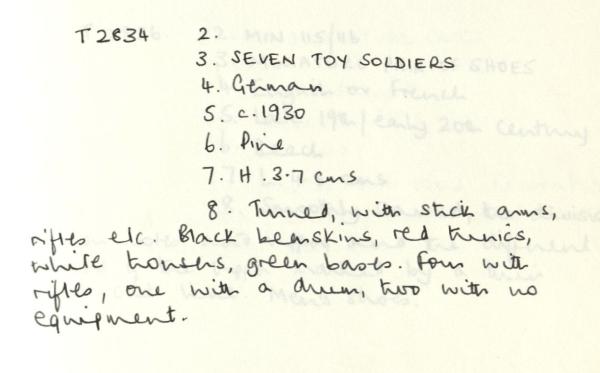 T2834 2.
3. SEVEN TOY SOLDIERS
4. German
5. c.1930
6. Pine
7. H. 3.7 cms
8. Turned, with stick arms,
rifles etc. Black bearskins, red tunics,
white trousers, green bases. Four with
rifles, one with a drum, two with no
equipment.